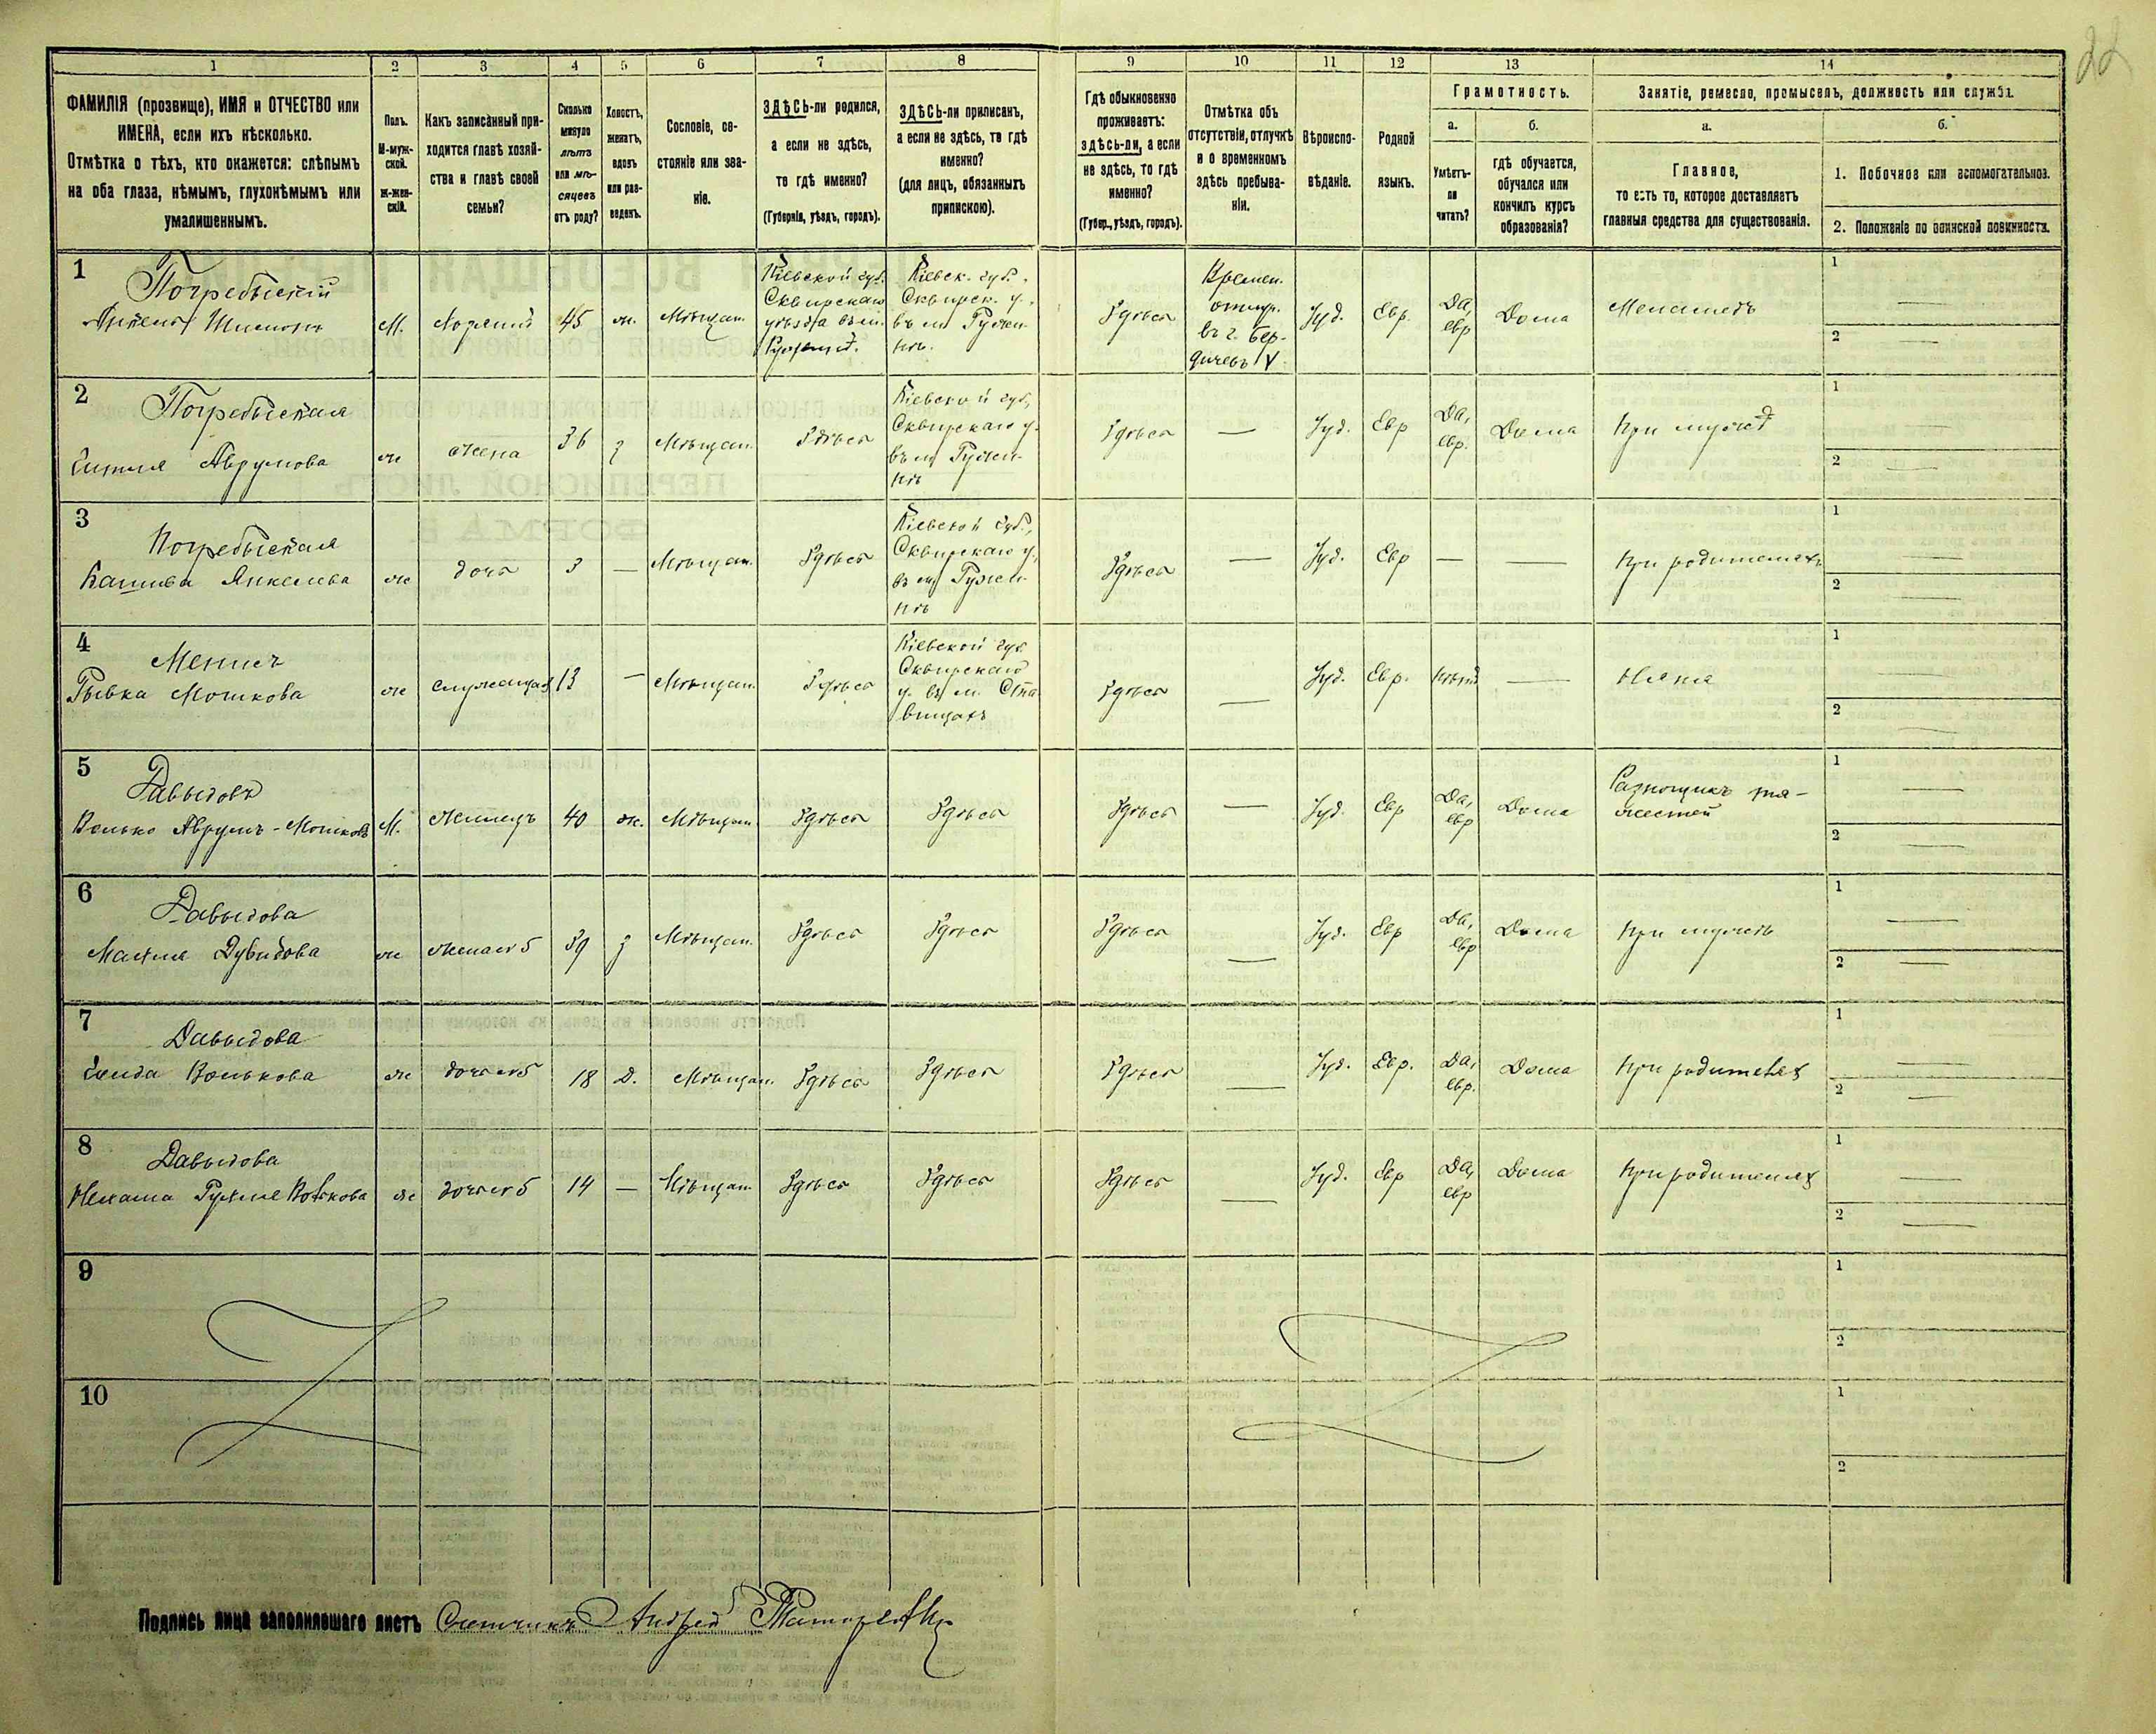 22
1 2 3 4 5 6 7 8 9 10 11 12 13 14
ФАМИЛІЯ (прозвище), ИМЯ и ОТЧЕСТВО или
ИМЕНА, если ихъ нѣсколько.
Отмѣтка о тѣхъ, кто окажется: слѣпымъ
на оба глаза, нѣмымъ, глухонѣмымъ или
умалишеннымъ.
Полъ.
М-муж-
ской.
Ж-жен-
скій.
Какъ записанный при-
ходится главѣ хозяй-
ства и главѣ своей
семьи?
Сколько
минуло
лѣтъ
или мѣ-
сяцевъ
отъ роду?
Холостъ,
женатъ,
вдовъ
или раз-
веденъ.
Сословіе, со-
стояніе или зва-
ніе.
ЗДѢСЬ-ли родился,
а если не здѣсь,
то гдѣ именно?
(Губернія, уѣздъ, городъ).
ЗДѢСЬ-ли приписанъ,
а если не здѣсь, то гдѣ
именно?
(для лицъ, обязанныхъ
припискою).
Гдѣ обыкновенно
проживаетъ:
здѣсь-ли, а если
не здѣсь, то гдѣ
именно?
(Губер., уѣздъ, городъ).
Отмѣтка объ
отсутствіи, отлучкѣ
и о временномъ
здѣсь пребыва-
ніи.
Вѣроиспо-
вѣданіе.
Родной
языкъ.
Грамотность.
а.
Умѣетъ-
ли
читать?
б.
гдѣ обучается,
обучался или
кончилъ курсъ
образованія?
Занятіе, ремесло, промыселъ, должность или служба.
а.
Главное,
то есть то, которое доставляетъ
главныя средства для существованія.
б.
1. Побочное или вспомогательное.
2. Положеніе по воинской повинности.
1
Погребыскій
Шимонъ
М.
45
ж.
Мѣщан.
Кіевской губ.
Сквирскаго
уѣзда въ м.
Ружинѣ.
Кіевск. губ.
Сквирск. у.
въ м. Ружи-
нѣ.
Здѣсь
Времен.
отлуч.
въ г. Бер-
дичевъ
Іуд.
Евр.
Да,
евр
Дома
Меламедъ
1 —
2 —
2
Погребыская
Аврумова
ж
жена
36
з
Мѣщан.
Здѣсь
Кіевской губ,
Сквирскаго у.
въ м Ружи-
нѣ
Здѣсь
—
Іуд.
Евр
Да,
евр.
Дома
При мужѣ
1
2 —
3
Погребыская
Янкелева
ж
дочь
3
—
Мѣщан.
Здѣсь
Кіевской губ.,
Сквирскаго у,
въ м Ружи-
нѣ
Здѣсь
—
Іуд.
Евр
—
—
При родителяхъ
1 —
2 —
4
Рывка Мошкова
ж
служащая
13
—
Мѣщан.
Здѣсь
Кіевской губ
Сквирскаго
у. въ м. Ста
вищахъ
Здѣсь
—
Іуд.
Евр.
Нѣтъ
—
Няня
1 —
2 —
5
Давыдовъ
Волько Аврумъ-Мошковъ
М.
Жилецъ
40
ж.
Мѣщан.
Здѣсь
Здѣсь
Здѣсь
—
Іуд.
Евр
Да,
евр
Дома
Разнощикъ тя-
жестей
1 —
2 —
6
Давыдова
Дувидова
ж
жена 5
39
з
Мѣщан.
Здѣсь
Здѣсь
Здѣсь
—
Іуд.
Евр
Да,
евр
Дома
При мужѣ
1 —
2 —
7
Давыдова
Волькова
ж
дочь 5
18
Д.
Мѣщан.
Здѣсь
Здѣсь
Здѣсь
—
Іуд.
Евр.
Да,
евр.
Дома
При родителях
1 —
2 —
8
Давыдова
Нехама Волькова
ж
дочь 5
14
—
Мѣщан
Здѣсь
Здѣсь
Здѣсь
—
Іуд.
Евр
Да,
евр
Дома
При родителях
1 —
2 —
9
1
2
10
1
2
Подпись лица заполнившаго листъ Счетчикъ Андрей